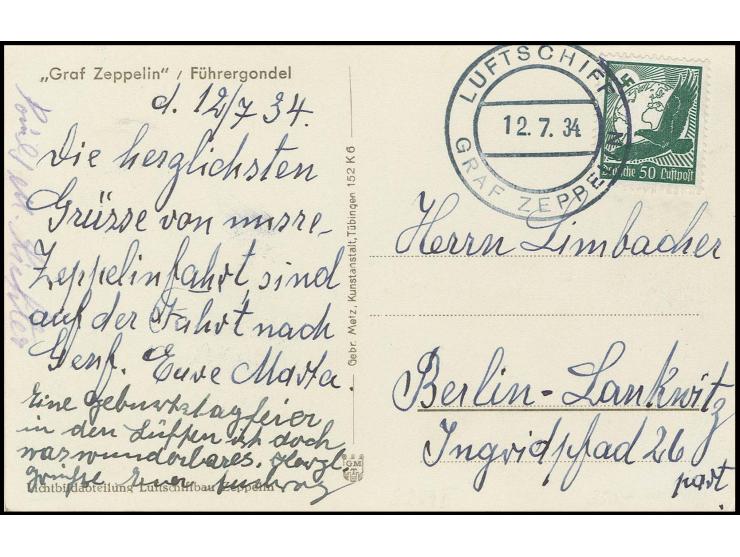 „Graf Zeppelin" / Führergondel
d. 12/7 34.
Die herzlichsten
Grüsse von unsre-
Zeppelinfahrt, sind
auf der Fahrt nach
Genf. Eure Marta.
Eine Geburtstagfeier
in den Lüften ist doch
was wunderbares. Herzl.
Grüße Euer
Lichtbildabteilung Luftschiffbau Zeppelin
Gebr. Metz, Kunstanstalt, Tübingen 152 K 6
GM
LUFTSCHIFF
12.7.34
GRAF ZEPPELIN
Deutsche 50 Luftpost
Herrn Limbacher
Berlin-Lankwitz
Ingridpfad 26
part.